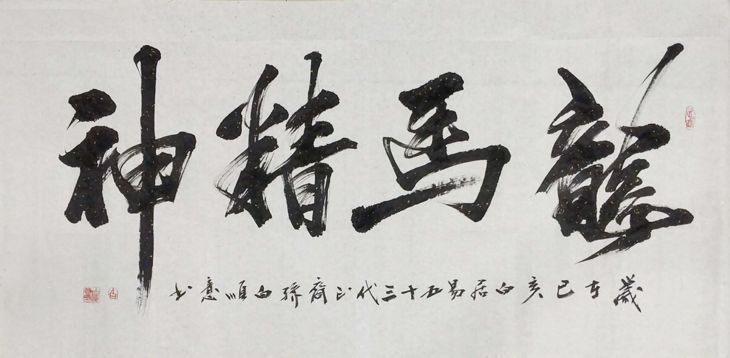 龍馬精神
歲在己亥白居易五十三代玄裔孫白順意書